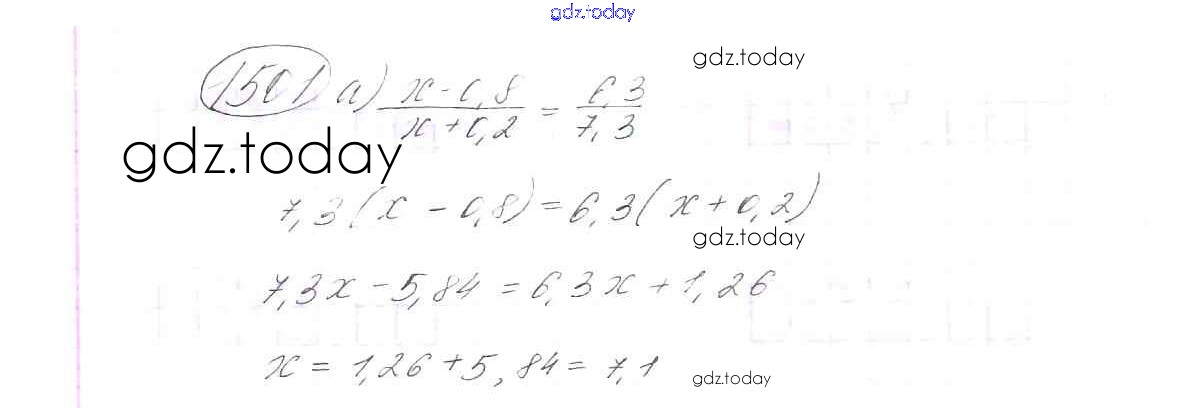 gdz.today
gdz.today
1501 а) (x-0,8)/(x+0,2) = 6,3/7,3
gdz.today
7,3(x-0,8)=6,3(x+0,2)
gdz.today
7,3x-5,84=6,3x+1,26
x=1,26+5,84=7,1
gdz.today